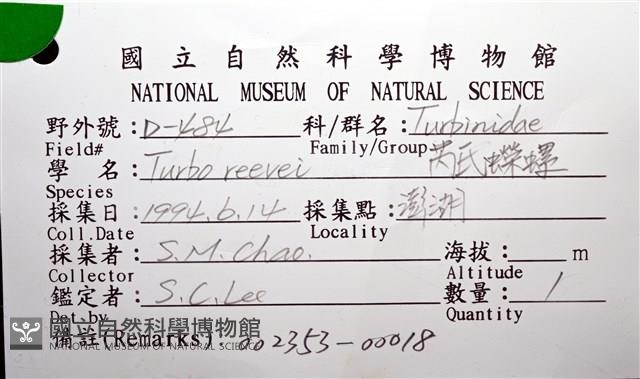 國立自然科學博物館
NATIONAL MUSEUM OF NATURAL SCIENCE
野外號：D-484 科/群名：Turbinidae
Field# Family/Group
學 名：Turbo reevei 芮氏蠑螺
Species
採集日：1994.6.14 採集點：澎湖
Coll.Date Locality
採集者：S.M.Chao. 海拔： m
Collector Altitude
鑑定者：S.C.Lee 數量：1
Det.by Quantity
備註(Remarks)：002353-00018
國立自然科學博物館
NATIONAL MUSEUM OF NATURAL SCIENCE